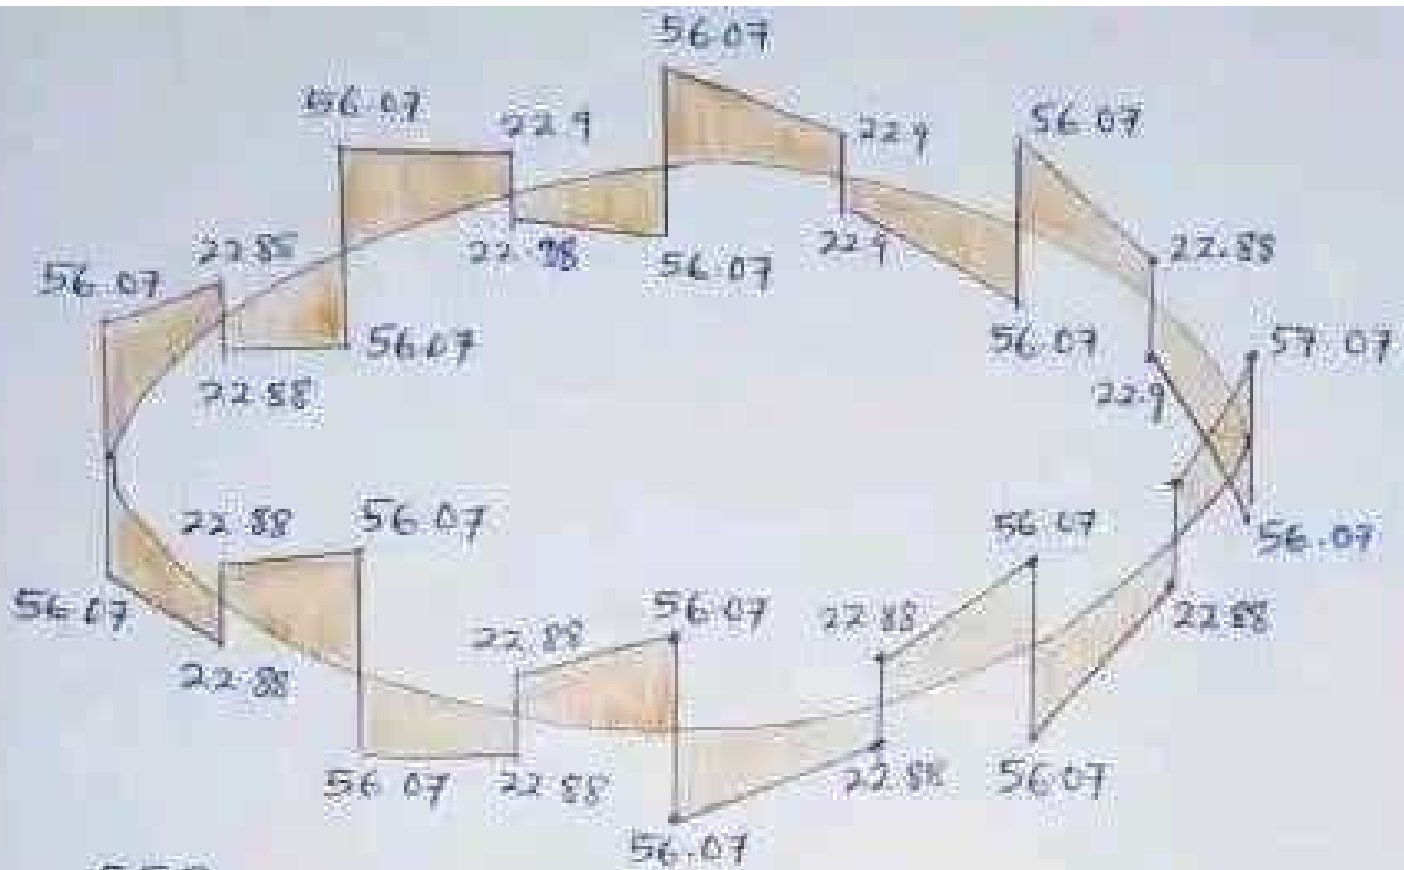 56.07
56.07
22.9
22.9
56.07
22.85
56.07
22.88
22.98
22.9
56.07
56.07
56.07
57.07
22.88
22.9
56.07
22.88
56.07
56.07
56.07
56.07
22.88
22.88
22.88
22.88
56.07
22.88
22.88
56.07
56.07